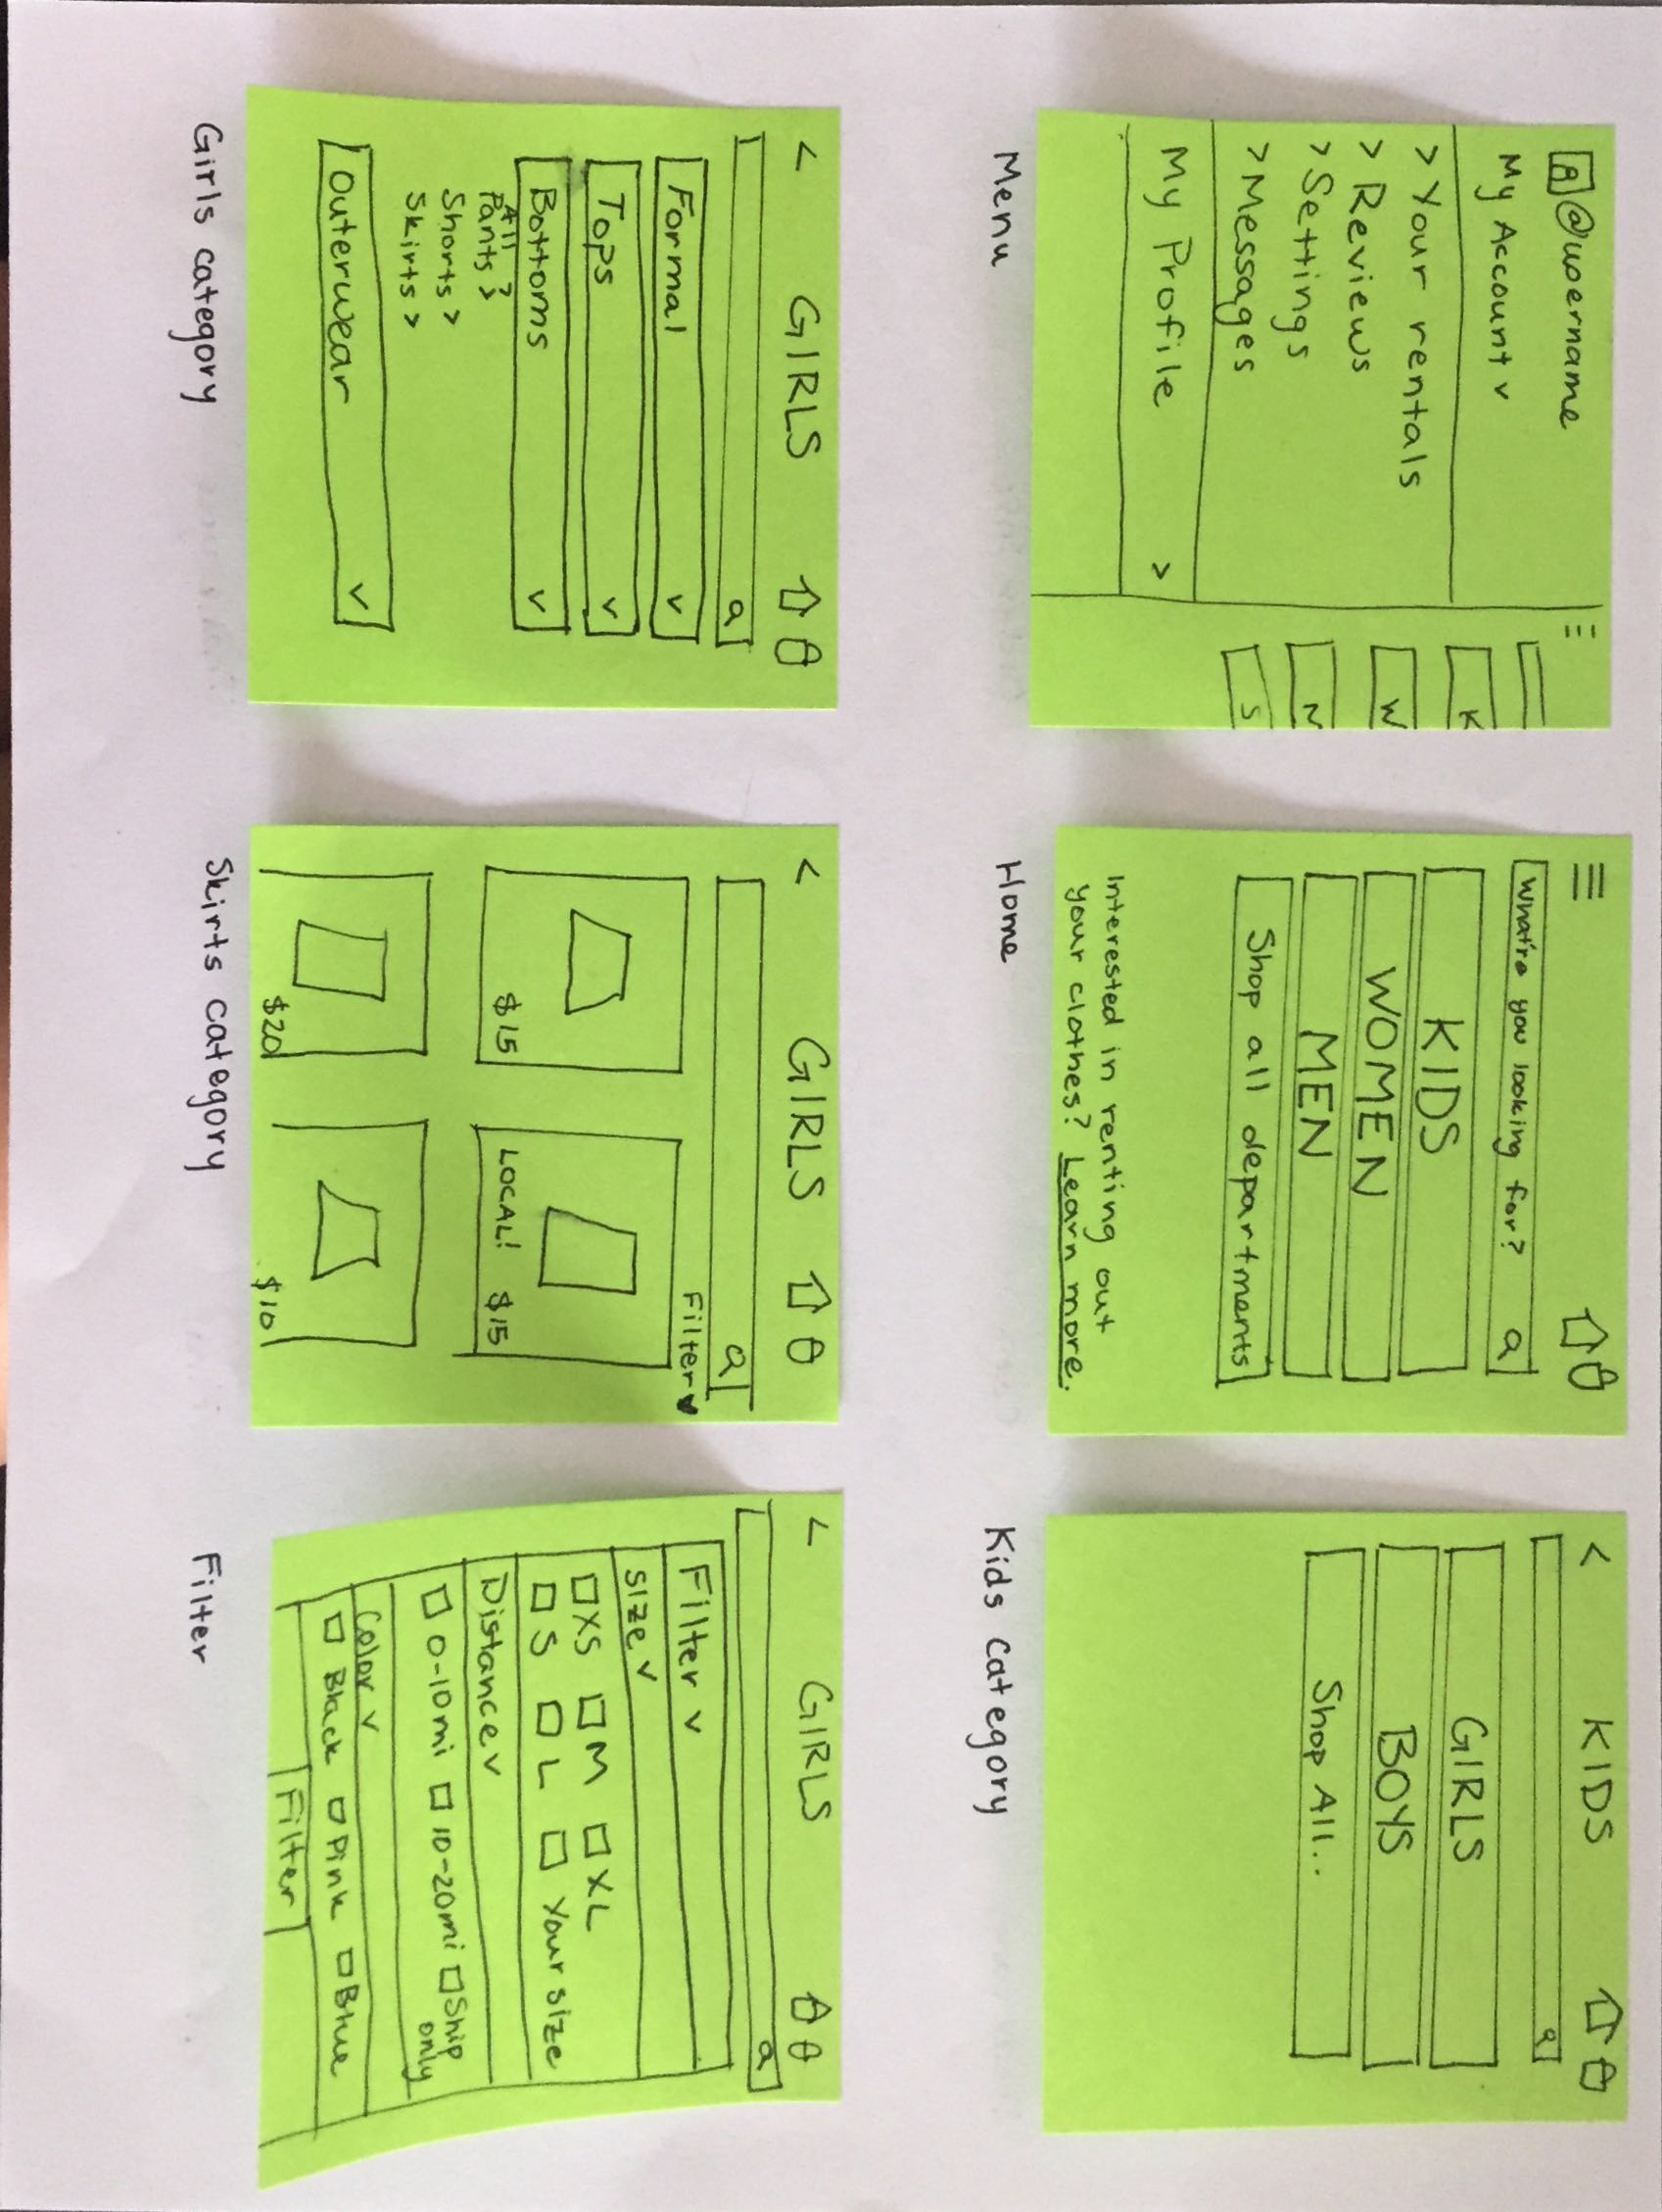 @username
My Account v
> Your rentals
> Reviews
> Settings
> Messages
My Profile >
K
W
M
S
Menu
What're you looking for?
KIDS
WOMEN
MEN
Shop all departments
Interested in renting out
your clothes? Learn more.
Home
< KIDS
GIRLS
BOYS
Shop All...
Kids category
< GIRLS
Formal v
Tops v
Bottoms v
All >
Pants >
Shorts >
Skirts >
Outerwear v
Girls category
< GIRLS
Filter
$15
LOCAL! $15
$20
$10
Skirts category
< GIRLS
Filter v
Size v
XS M XL
S L Your size
Distance v
0-10mi 10-20mi Ship
only
Color v
Black Pink Blue
Filter
Filter